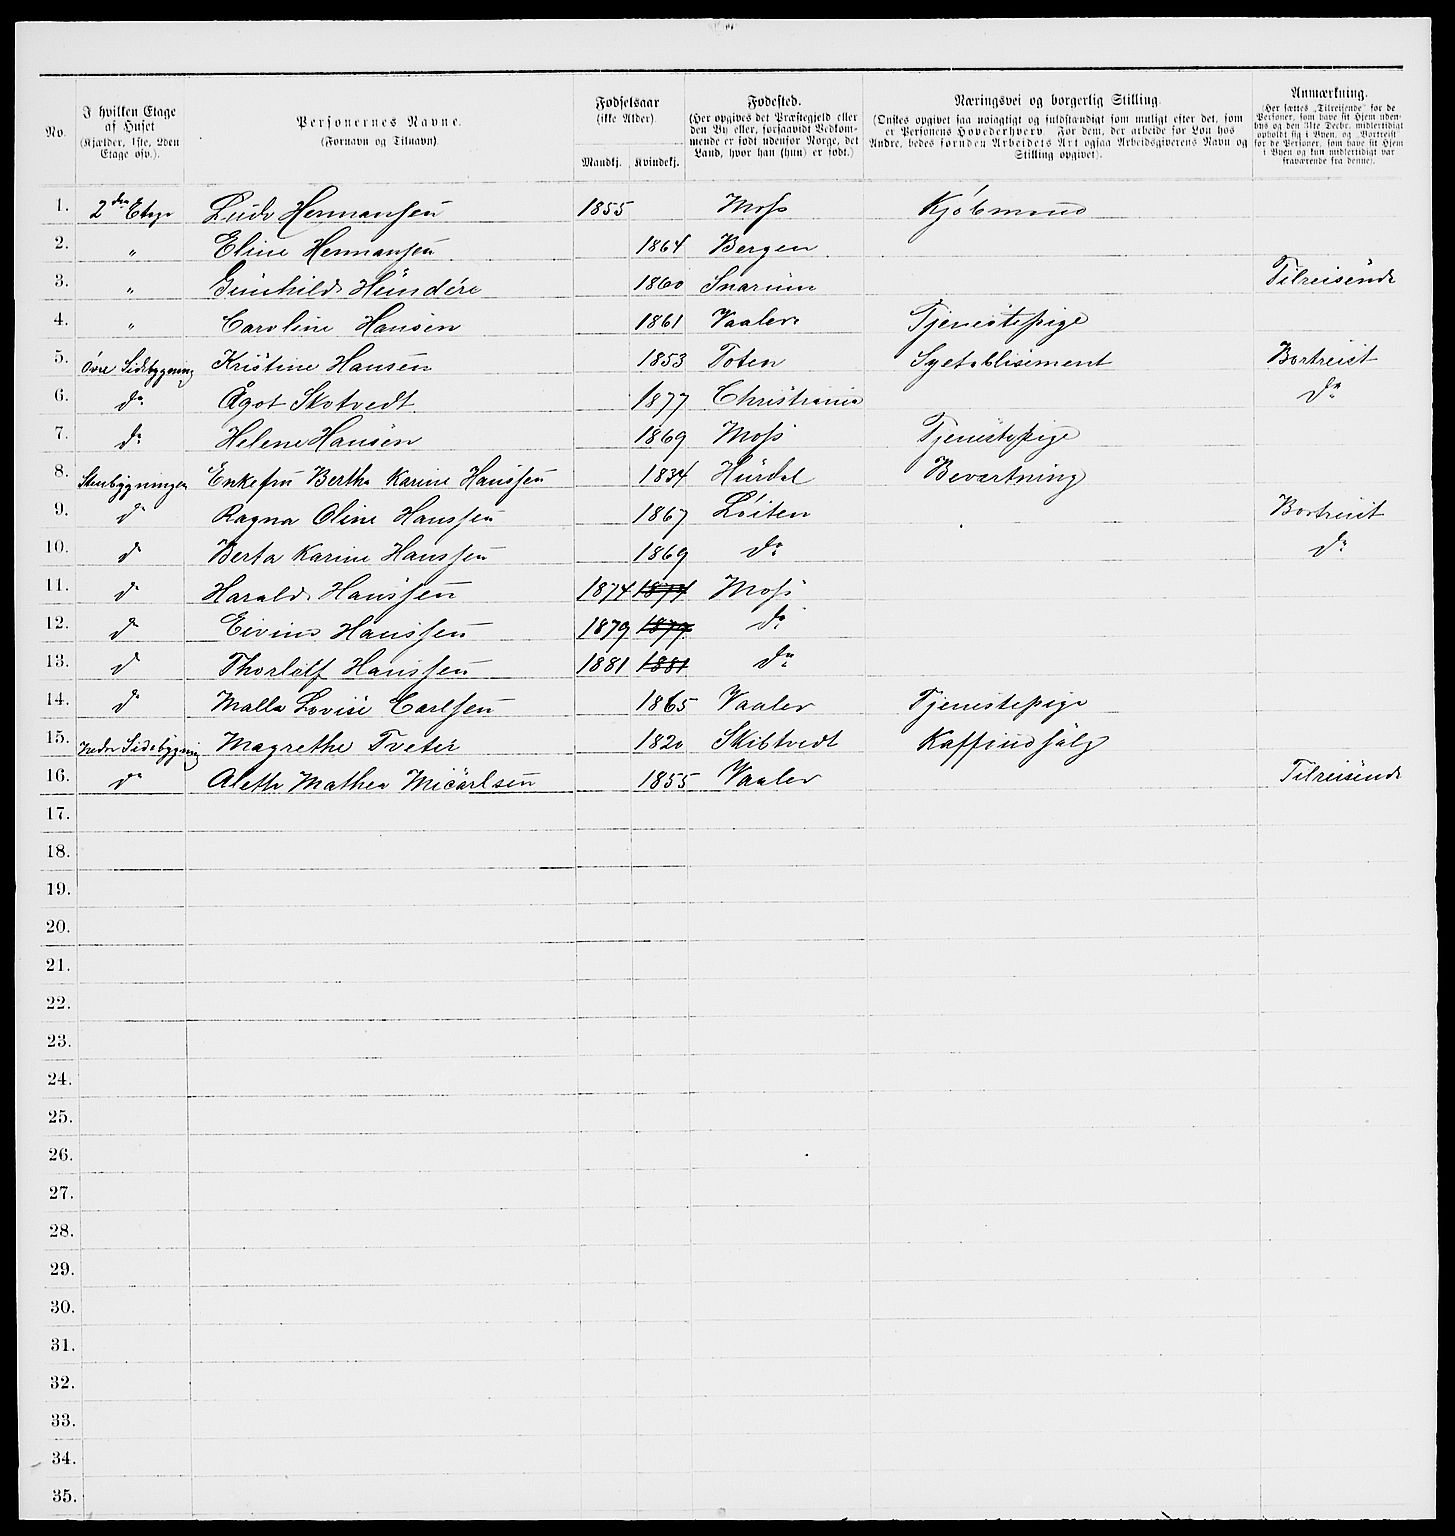 No.
I hvilken Etage af Huset (Kjælder, 1ste, 2den Etage osv.).
Personernes Navne. (Fornavn og Tilnavn)
Fødselsaar (ikke Alder). Mandkj. Kvindekj.
Fødested. (Her opgives det Præstegjeld eller den By eller, forsaavidt Vedkommende er født udenfor Norge, det Land, hvor han (hun) er født.)
Næringsvei og borgerlig Stilling. (Ønskes opgivet saa nøiagtigt og fuldstændigt som muligt efter det, som er Personens Hovederhverv. For dem, der arbeide for Løn hos Andre, bedes foruden Arbeidets Art ogsaa Arbeidsgiverens Navn og Stilling opgivet).
Anmærkning. (Her sættes „Tilreisende" for de Personer, som have sit Hjem udenbys og den 31te Decbr. midlertidigt opholdt sig i Byen, og „Bortreist" for de Personer, som have sit Hjem i Byen og kun midlertidigt var fraværende fra denne).
1. 2den Etage Ludv Hermansen 1855 Moss Kjöbmand
2. " Eline Hermansen 1864 Bergen
3. " Gunhild Hundere 1860 Snarum Tilreisende
4. " Caroline Hansen 1861 Vaaler Tjenestepige
5. övre Sidebygning Kristine Hansen 1853 Toten Syetablisement Bortreist
6. do Ågot Skotvedt 1877 Christiania do
7. do Helene Hansen 1869 Moss Tjenestepige
8. Stenbygningen Enkefru Bertha Karine Hanssen 1834 Hurdal Bevertning
9. do Ragna Oline Hanssen 1867 Löiten Bortreist
10. do Berta Karine Hanssen 1869 do do
11. do Harald Hanssen 1874 1874 Moss
12. do Eivind Hanssen 1879 1879 do
13. do Thorleif Hanssen 1881 1881 do
14. do Malla Lovise Carlsen 1865 Vaaler Tjenestepige
15. Nedre Sidebygning Magrethe Tveter 1820 Skibtvedt
16. do Aleth Mathea 1855 Vaaler Tilreisende
17.
18.
19.
20.
21.
22.
23.
24.
25.
26.
27.
28.
29.
30.
31.
32.
33.
34.
35.